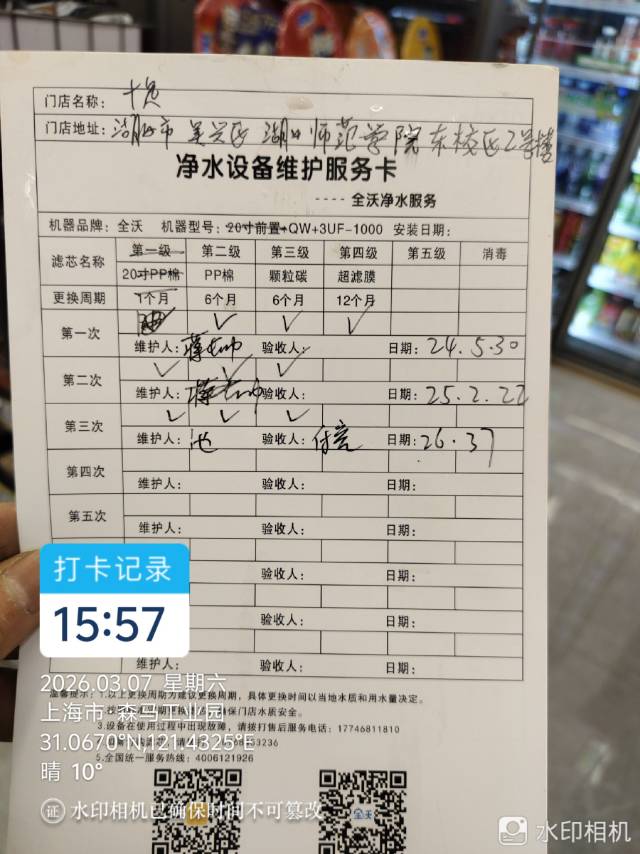 门店名称: 十足
门店地址: 湖州市 吴兴区 湖州师范学院东校区2号楼
净水设备维护服务卡
---- 全沃净水服务
机器品牌: 全沃 机器型号: 20寸前置+QW+3UF-1000 安装日期:
滤芯名称 第一级 第二级 第三级 第四级 第五级 消毒
20寸PP棉 PP棉 颗粒碳 超滤膜
更换周期 1个月 6个月 6个月 12个月
第一次 ✓ ✓ ✓
维护人: 验收人: 日期: 24.5.30
第二次 ✓ ✓ ✓
维护人: 验收人: 日期: 25.2.22
第三次 ✓ ✓ ✓
维护人: 池 验收人: 日期: 26.37
第四次
维护人: 验收人: 日期:
第五次
维护人: 验收人: 日期:
验收人: 日期:
验收人: 日期:
维护人: 验收人: 日期:
温馨提示: 1.以上更换周期为建议更换周期，具体更换时间以当地水质和用水量决定。
保门店水质安全。
3.设备在使用过程中出现故障，请拨打售后服务电话: 17746811810
5.全国统一服务热线: 4006121926
全沃
打卡记录
15:57
2026.03.07 星期六
上海市·森马工业园
31.0670°N,121.4325°E
晴 10°
证 水印相机已确保时间不可篡改
水印相机